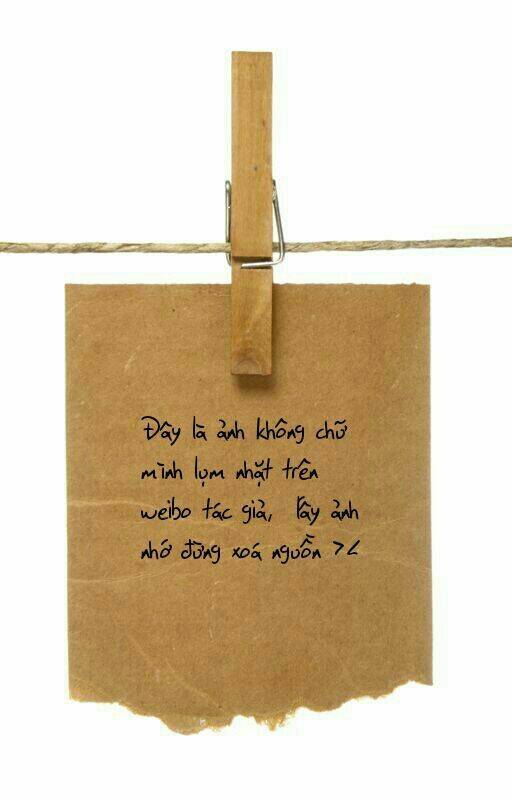 Đây là ảnh không chữ
mình lụm nhặt trên
weibo tác giả, lấy ảnh
nhớ đừng xoá nguồn ><